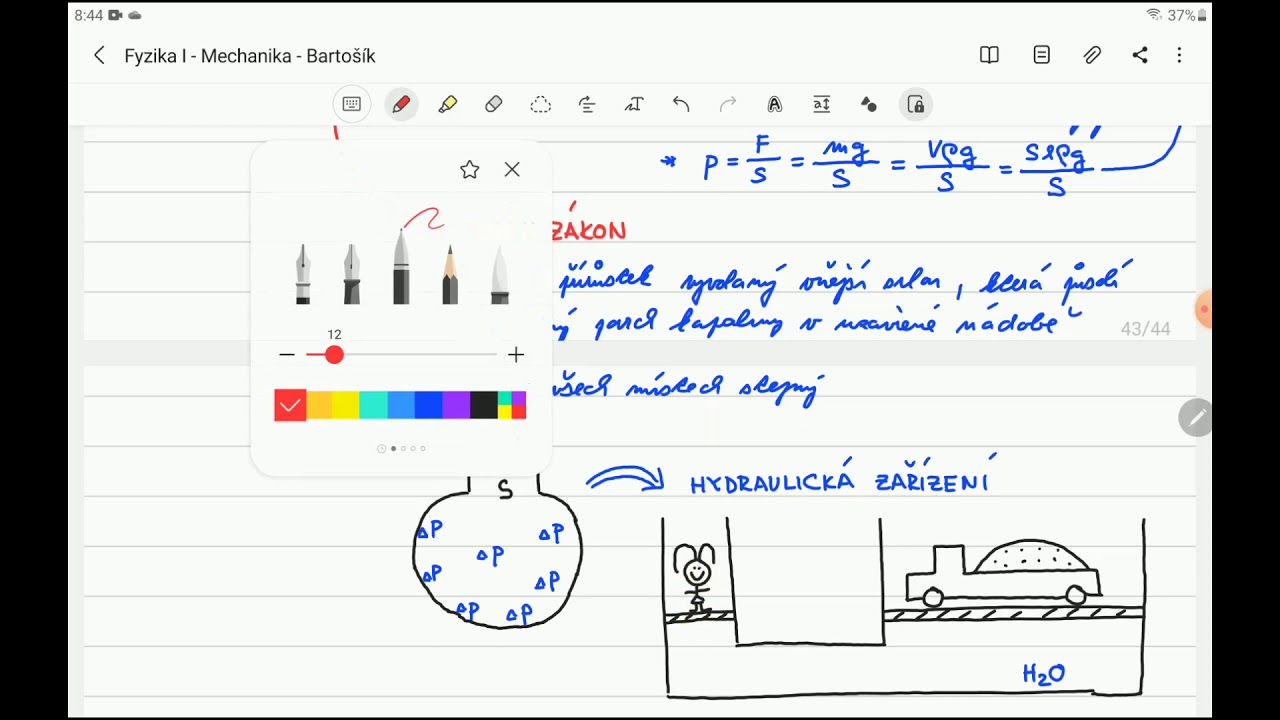 8:44 37%
Fyzika I - Mechanika - Bartošík
* p = F/S = mg/S = Vρg/S = Slρg/S
ZÁKON
přírůstek vyvolaný vnější silou, která působí
12
povrch kapaliny v uzavřené nádobě
43/44
všech místech stejný
S
HYDRAULICKÁ ZAŘÍZENÍ
ΔP ΔP
ΔP
ΔP ΔP
ΔP ΔP
H₂O